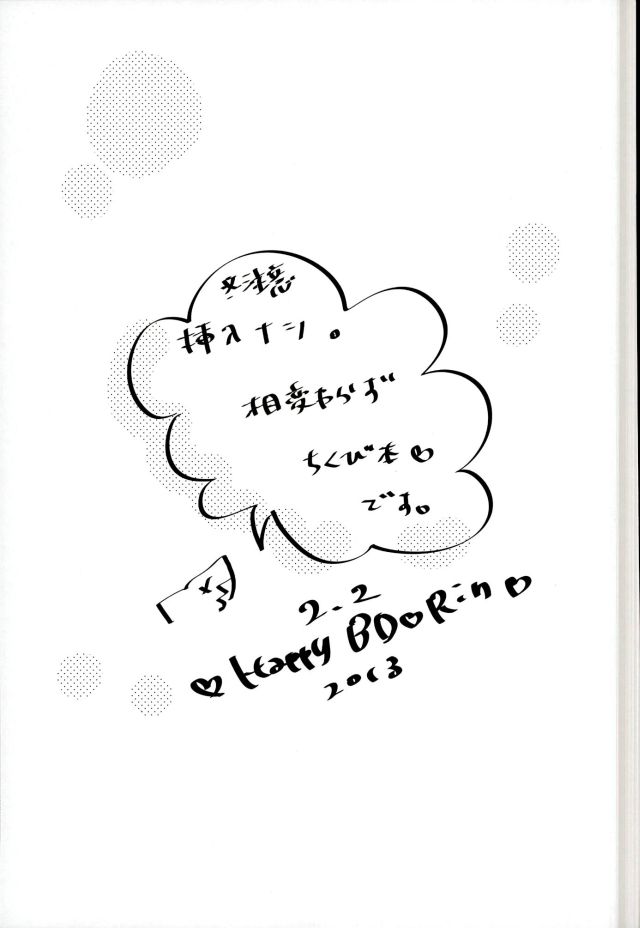 ※注意
挿入ナシ。
相変わらず
ちくび本♡
です。
2.2
♡Happy BD♡Rin♡
2013